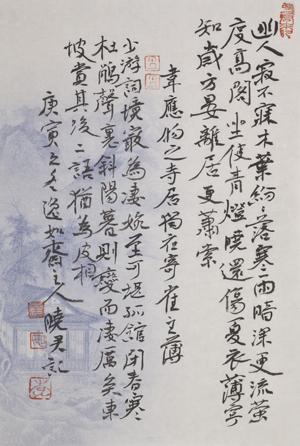 幽人寂不寐木葉紛々落寒雨暗深更流螢
度高閣坐使青燈曉還傷夏衣薄寧
知歲方晏離居更蕭索
韋應物之寺居獨夜寄崔主薄
少游詞境最為淒婉至可堪孤館閉春寒
杜鵑聲裏斜陽暮則變而淒厲矣東
坡賞其後二語猶為皮相
庚寅之冬如齋主人曉君記